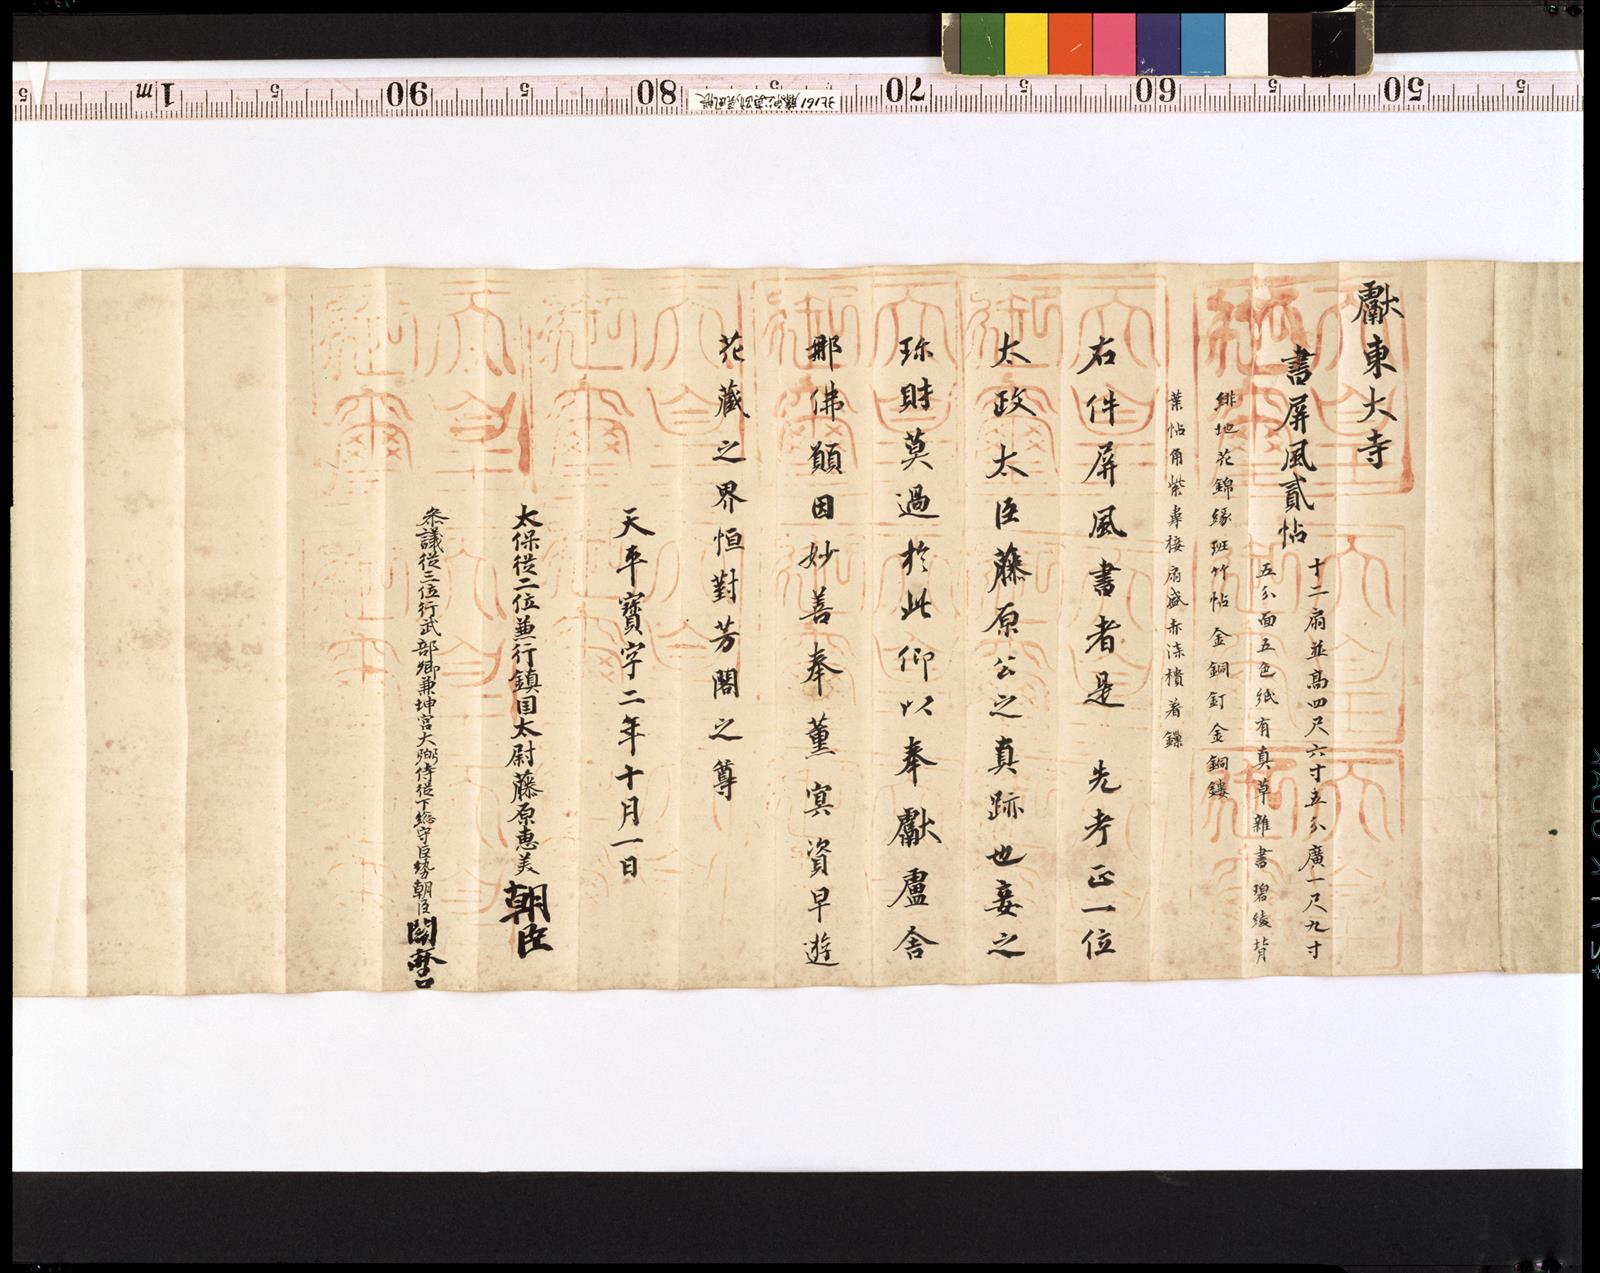 獻東大寺
書屏風貳帖
十二扇並高四尺六寸五分廣一尺九寸
五分面五色紙有真草雜書碧綾背
緋地花錦緣斑竹帖金銅釘金銅鏤
葉帖角紫皮接扇盛赤漆櫃着鏁
右件屏風書者是　先考正一位
太政太臣藤原公之真跡也妾之
珎財莫過於此仰以奉獻盧舍
那佛願因妙善奉薰冥資早遊
花藏之界恒對芳閣之尊
天平寶字二年十月一日
太保從二位兼行鎮国太尉藤原惠美朝臣
叅議從三位行武部卿兼坤宮大弼侍從下総守巨勢朝臣關麿
大皇御璽
50 5 60 5 70 5 80 5 90 5 1m 5
北161